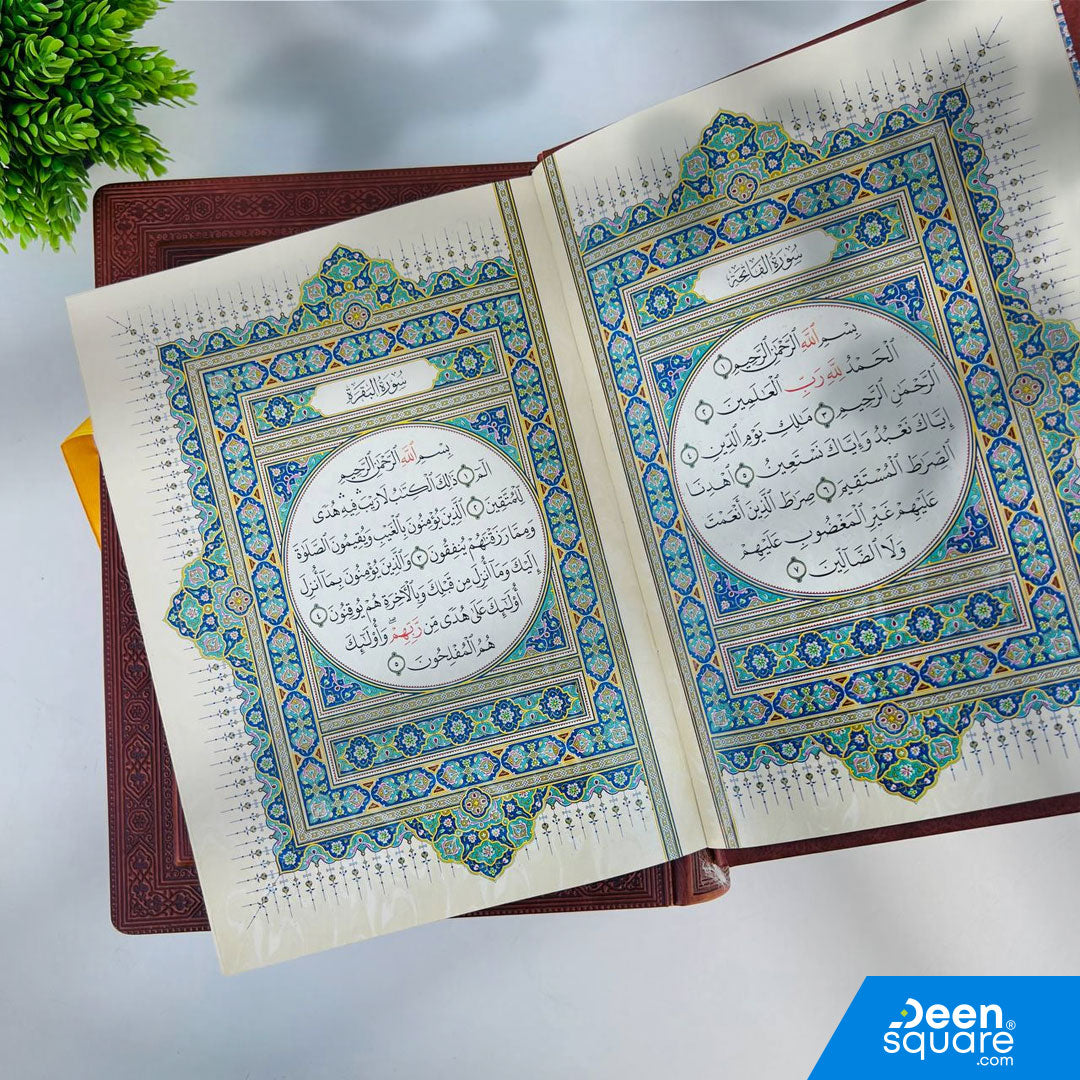 سورة الفاتحة
بِسْمِ ٱللَّهِ ٱلرَّحْمَٰنِ ٱلرَّحِيمِ ١
ٱلْحَمْدُ لِلَّهِ رَبِّ ٱلْعَٰلَمِينَ ٢
ٱلرَّحْمَٰنِ ٱلرَّحِيمِ ٣ مَٰلِكِ يَوْمِ ٱلدِّينِ ٤
إِيَّاكَ نَعْبُدُ وَإِيَّاكَ نَسْتَعِينُ ٥ ٱهْدِنَا
ٱلصِّرَٰطَ ٱلْمُسْتَقِيمَ ٦ صِرَٰطَ ٱلَّذِينَ أَنْعَمْتَ
عَلَيْهِمْ غَيْرِ ٱلْمَغْضُوبِ عَلَيْهِمْ
وَلَا ٱلضَّآلِّينَ ٧
سورة البقرة
بِسْمِ ٱللَّهِ ٱلرَّحْمَٰنِ ٱلرَّحِيمِ
الٓمٓ ١ ذَٰلِكَ ٱلْكِتَٰبُ لَا رَيْبَ ۛ فِيهِ ۛ هُدًى
لِّلْمُتَّقِينَ ٢ ٱلَّذِينَ يُؤْمِنُونَ بِٱلْغَيْبِ وَيُقِيمُونَ ٱلصَّلَوٰةَ
وَمِمَّا رَزَقْنَٰهُمْ يُنفِقُونَ ٣ وَٱلَّذِينَ يُؤْمِنُونَ بِمَآ أُنزِلَ
إِلَيْكَ وَمَآ أُنزِلَ مِن قَبْلِكَ وَبِٱلْأَخِرَةِ هُمْ يُوقِنُونَ ٤
أُو۟لَٰٓئِكَ عَلَىٰ هُدًى مِّن رَّبِّهِمْ ۖ وَأُو۟لَٰٓئِكَ
هُمُ ٱلْمُفْلِحُونَ ٥
Deen
square®
.com